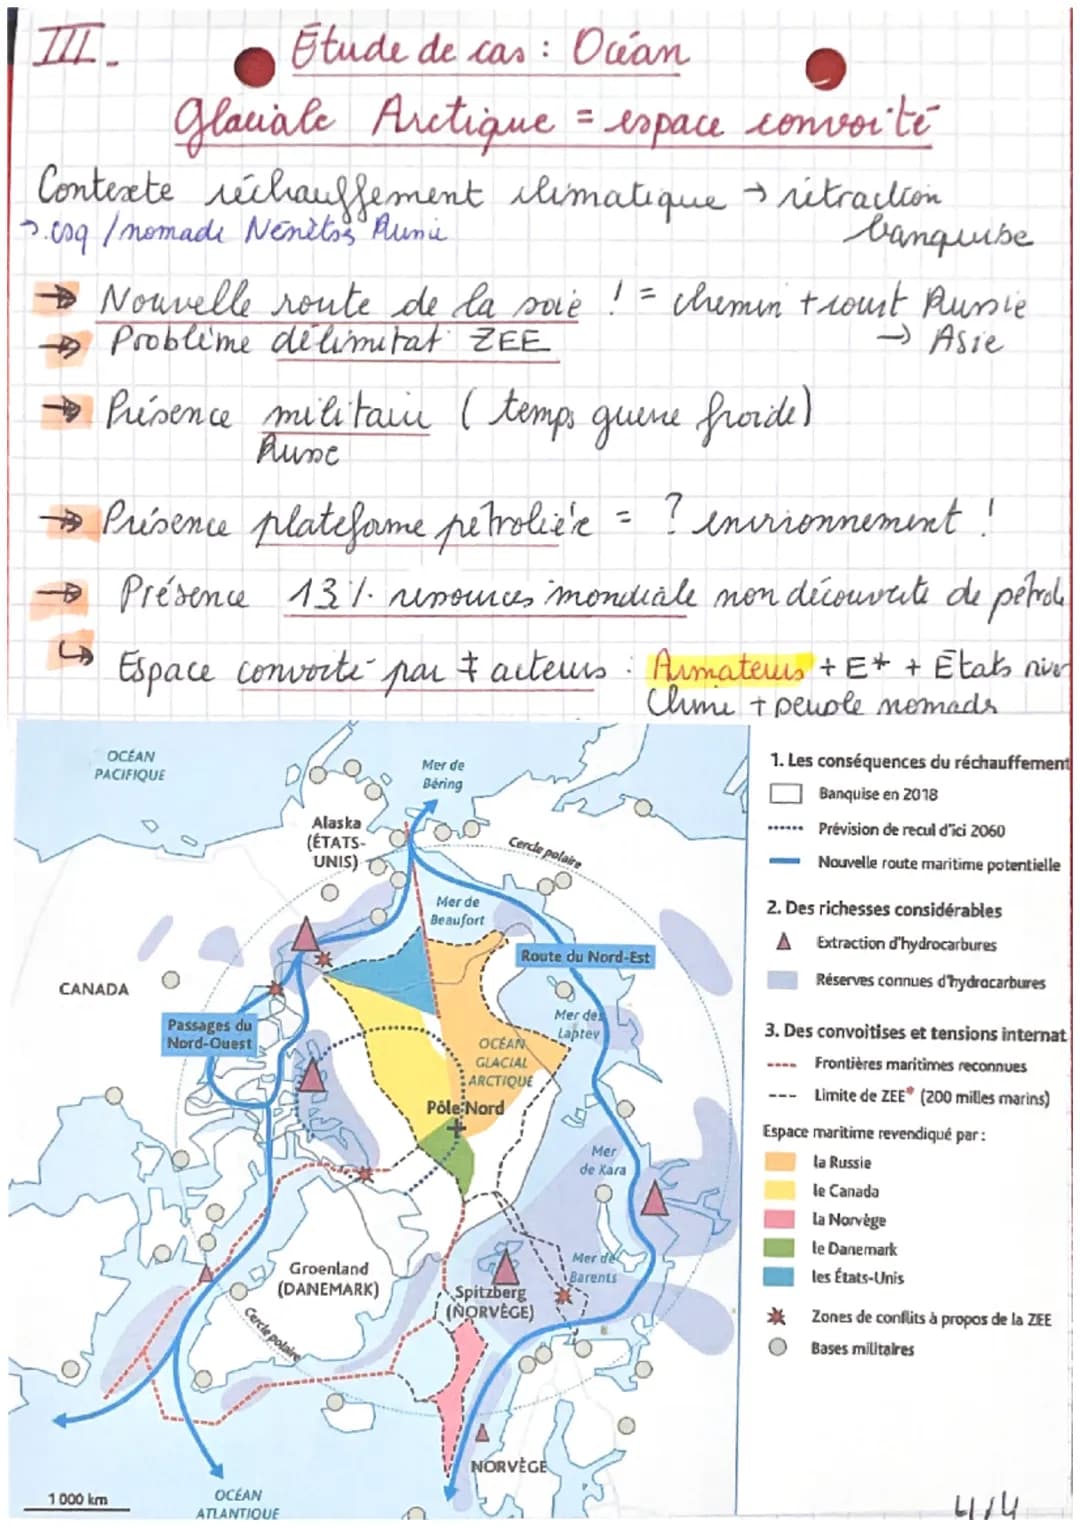 III.
Étude de cas : Océan
Glaciale Arctique = espace convoité
Contexte réchauffement climatique → rétraction
banquise
→ csq / nomade Nénètes Russie
→ Nouvelle route de la soie ! = chemin + court Russie
→ Asie
→ Problème délimitat° ZEE
→ Présence militaire (temps guerre froide)
Russe
→ Présence plateforme pétrolière = ? environnement !
→ Présence 13 % ressources mondiale non découverte de pétrole
↳ Espace convoité par ≠ acteurs : Armateurs + E* + États river
Chine + peuple nomads
OCÉAN
PACIFIQUE
Mer de
Béring
Alaska
(ÉTATS-
UNIS)
Cercle polaire
Mer de
Beaufort
Route du Nord-Est
CANADA
Passages du
Nord-Ouest
Mer des
Laptev
OCÉAN
GLACIAL
ARCTIQUE
Pôle Nord
Mer
de Kara
Groenland
(DANEMARK)
Mer de
Barents
Spitzberg
(NORVÈGE)
Cercle polaire
NORVÈGE
1 000 km
OCÉAN
ATLANTIQUE
1. Les conséquences du réchauffement
Banquise en 2018
Prévision de recul d'ici 2060
Nouvelle route maritime potentielle
2. Des richesses considérables
Extraction d'hydrocarbures
Réserves connues d'hydrocarbures
3. Des convoitises et tensions internat
Frontières maritimes reconnues
Limite de ZEE* (200 milles marins)
Espace maritime revendiqué par :
la Russie
le Canada
la Norvège
le Danemark
les États-Unis
Zones de conflits à propos de la ZEE
Bases militaires
4/4